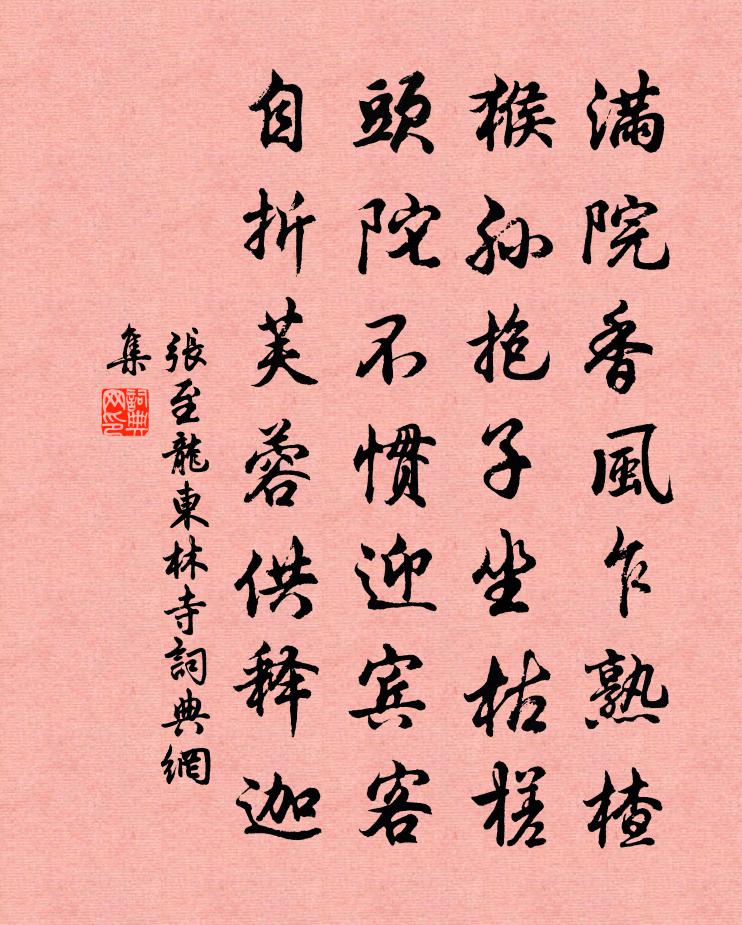 满院香風乍熟楂
猴孙抱子坐枯槎
頭陀不惯迎宾客
自折芙蓉供释迦
張至龍東林寺詞典網
集
詞典
网印